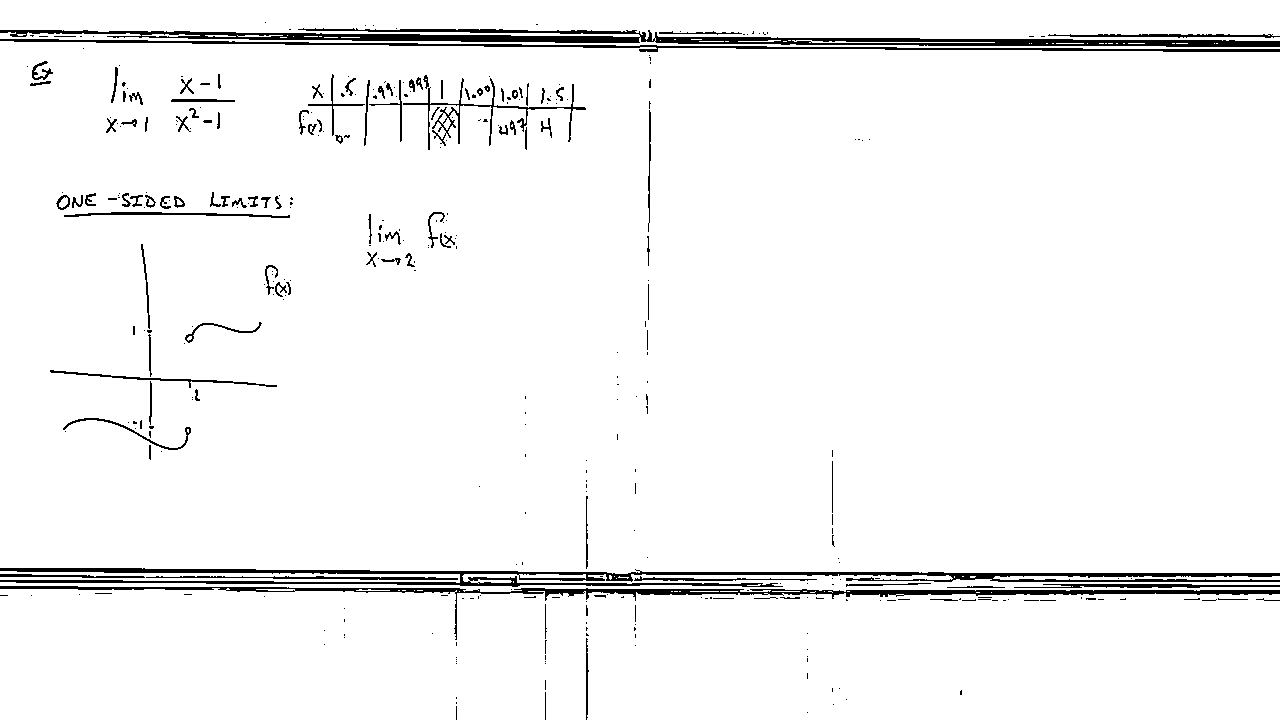 Ex
lim x→1 x-1 / x²-1
x .5 .99 .999 1 1.001 1.01 1.5
f(x) .497 .4
ONE-SIDED LIMITS:
lim x→2 f(x
f(x)
1
2
-1